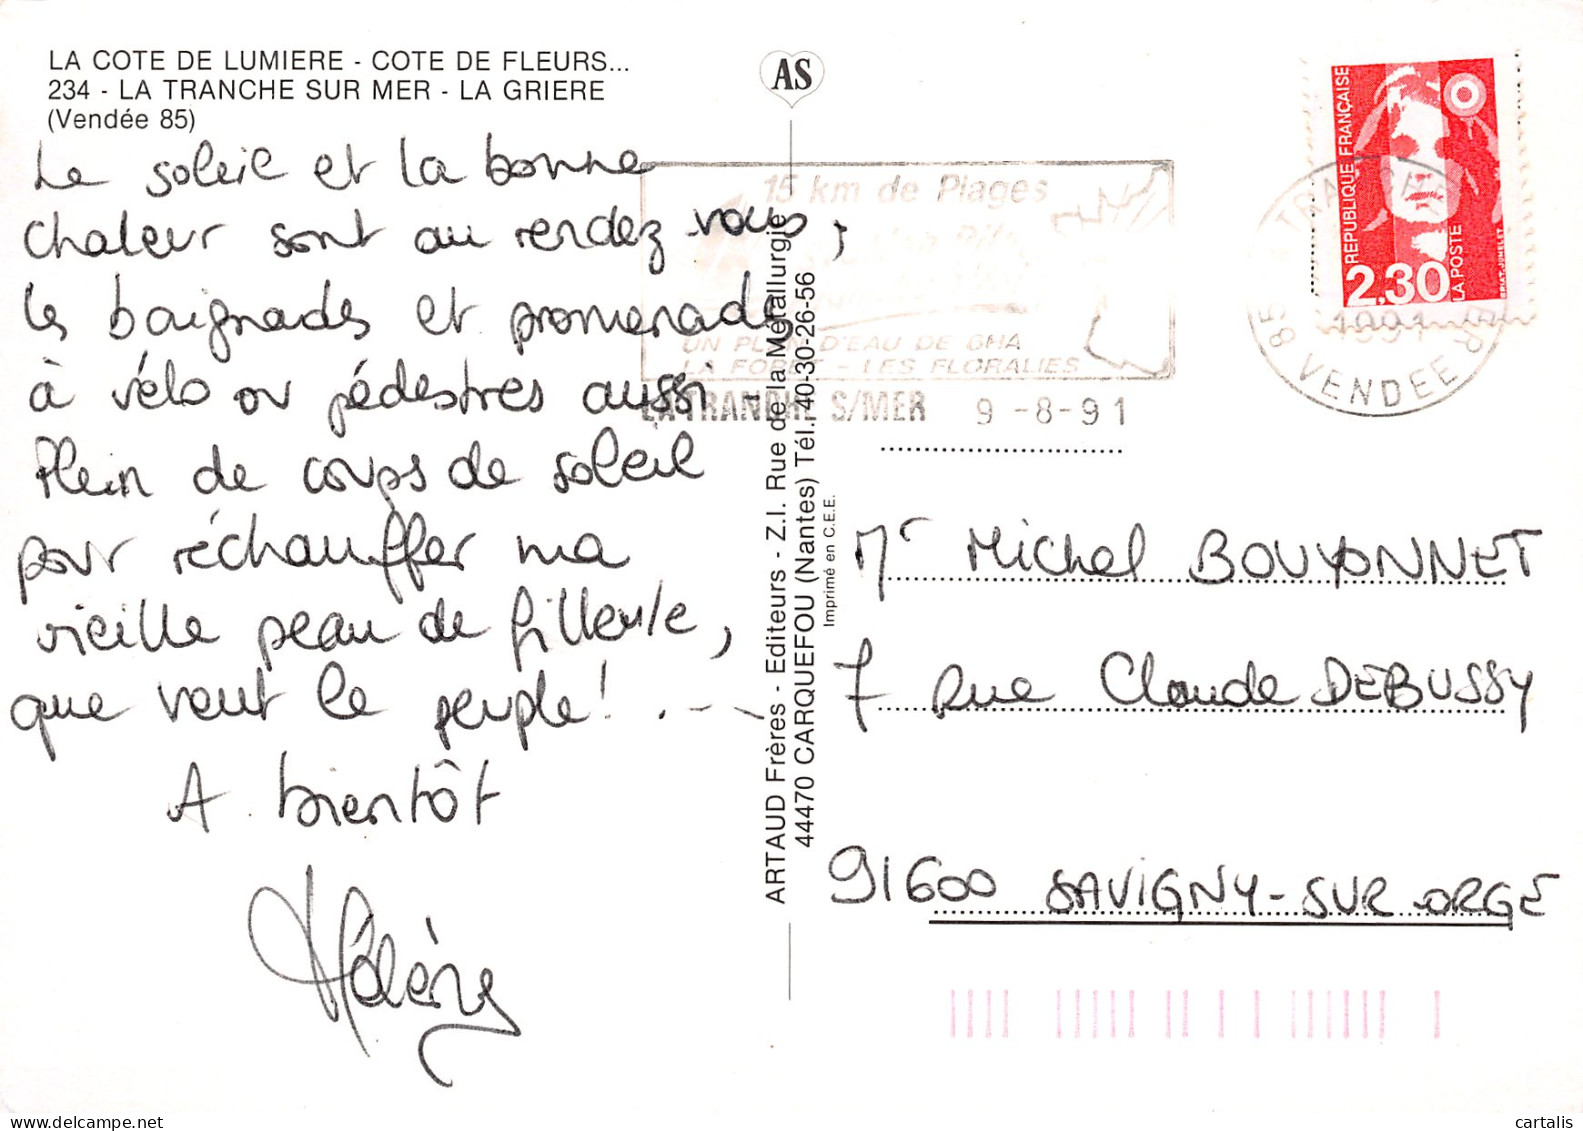 LA COTE DE LUMIERE - COTE DE FLEURS...
234 - LA TRANCHE SUR MER - LA GRIERE
(Vendée 85)
Le soleil et la bonne
chaleur sont au rendez vous,
les baignades et promenades
à vélo ou pédestres aussi -
Plein de coups de soleil
pour réchauffer ma
vieille peau de filleule,
que veut le peuple! . - -
A bientôt
Hélène
AS
ARTAUD Frères - Editeurs - Z.I. Rue de la Métallurgie
44470 CARQUEFOU (Nantes) Tél. 40-30-26-56
Imprimé en C.E.E.
15 km de Plages
UN PLAN D'EAU DE 6HA
LA FORET - LES FLORALIES
LA TRANCHE S/MER 9-8-91
REPUBLIQUE FRANÇAISE
2,30
LA POSTE
BRIAT-JUMELET
1991
85 VENDEE
Mr Michel BOUYONNET
7 Rue Claude DEBUSSY
91600 SAVIGNY-SUR ORGE
cartalis